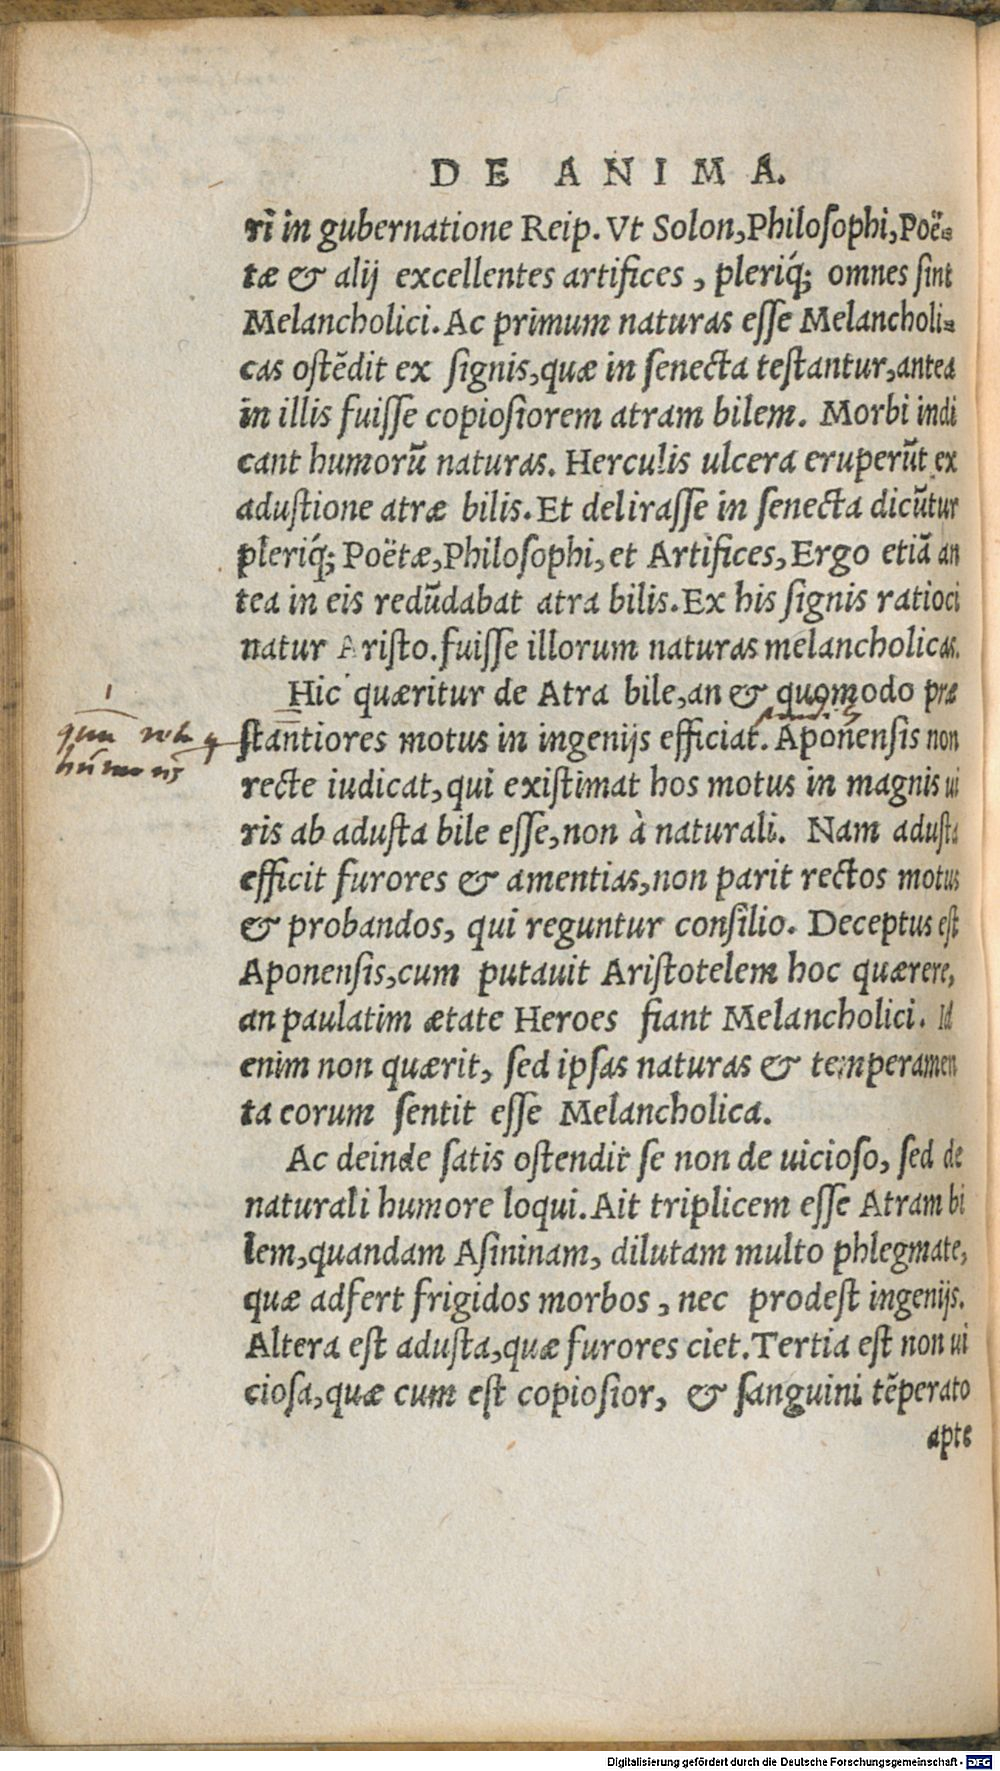 DE ANIMA.
ri in gubernatione Reip. Vt Solon, Philosophi, Poë-
tæ & alij excellentes artifices, pleriq́; omnes sint
Melancholici. Ac primum naturas esse Melancholi-
cas ostēdit ex signis, quæ in senecta testantur, antea
in illis fuisse copiosiorem atram bilem. Morbi indi
cant humorū naturas. Herculis ulcera eruperūt ex
adustione atræ bilis. Et delirasse in senecta dicūtur
pleriq́; Poëtæ, Philosophi, et Artifices, Ergo etiā an
tea in eis redūdabat atra bilis. Ex his signis ratioci
natur Aristo. fuisse illorum naturas melancholicas.
Hic quæritur de Atra bile, an & quomodo præ
stantiores motus in ingenijs efficiat. Aponensis non
recte iudicat, qui existimat hos motus in magnis ui
ris ab adusta bile esse, non à naturali. Nam adusta
efficit furores & amentias, non parit rectos motus
& probandos, qui reguntur consilio. Deceptus est
Aponensis, cum putauit Aristotelem hoc quærere,
an paulatim ætate Heroes fiant Melancholici. Id
enim non quærit, sed ipsas naturas & temperamen
ta eorum sentit esse Melancholica.
Ac deinde satis ostendit se non de uicioso, sed de
naturali humore loqui. Ait triplicem esse Atram bi
lem, quandam Asininam, dilutam multo phlegmate,
quæ adfert frigidos morbos, nec prodest ingenijs.
Altera est adusta, quæ furores ciet. Tertia est non ui
ciosa, quæ cum est copiosior, & sanguini tēperato
apte
Digitalisierung gefördert durch die Deutsche Forschungsgemeinschaft - DFG